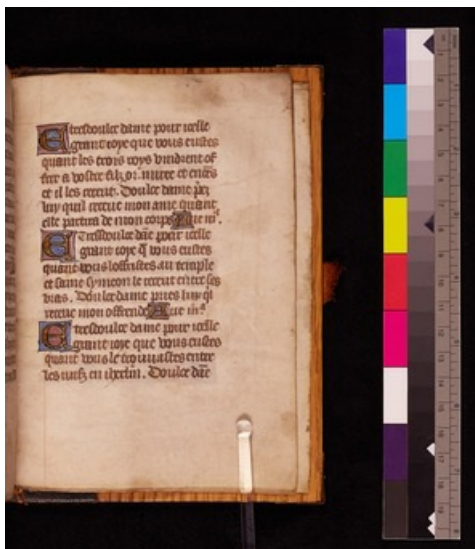 E tresdoulce dame pour icelle
grant ioye que vous eustes
quant les trois roys vindrent of
frir a vostre filz or. mirre et encēs
et il les receut. Doulce dame p̄ez
luy quil recoiue mon ame quant
elle partira de mon corps Aue mª.
E Tresdoulce dāe pour icelle
grant ioye q̄ vous eustes
quant vous loffristes au temple
et saint symeon le receut entre ses
bras. Doulce dame pries luy q̄l
recoiue mon offrende Aue mª
E tresdoulce dame pour icelle
grant ioye que vous eustes
quant vous le trouuastes entre
les iuifz en iherlm. Doulce dāe